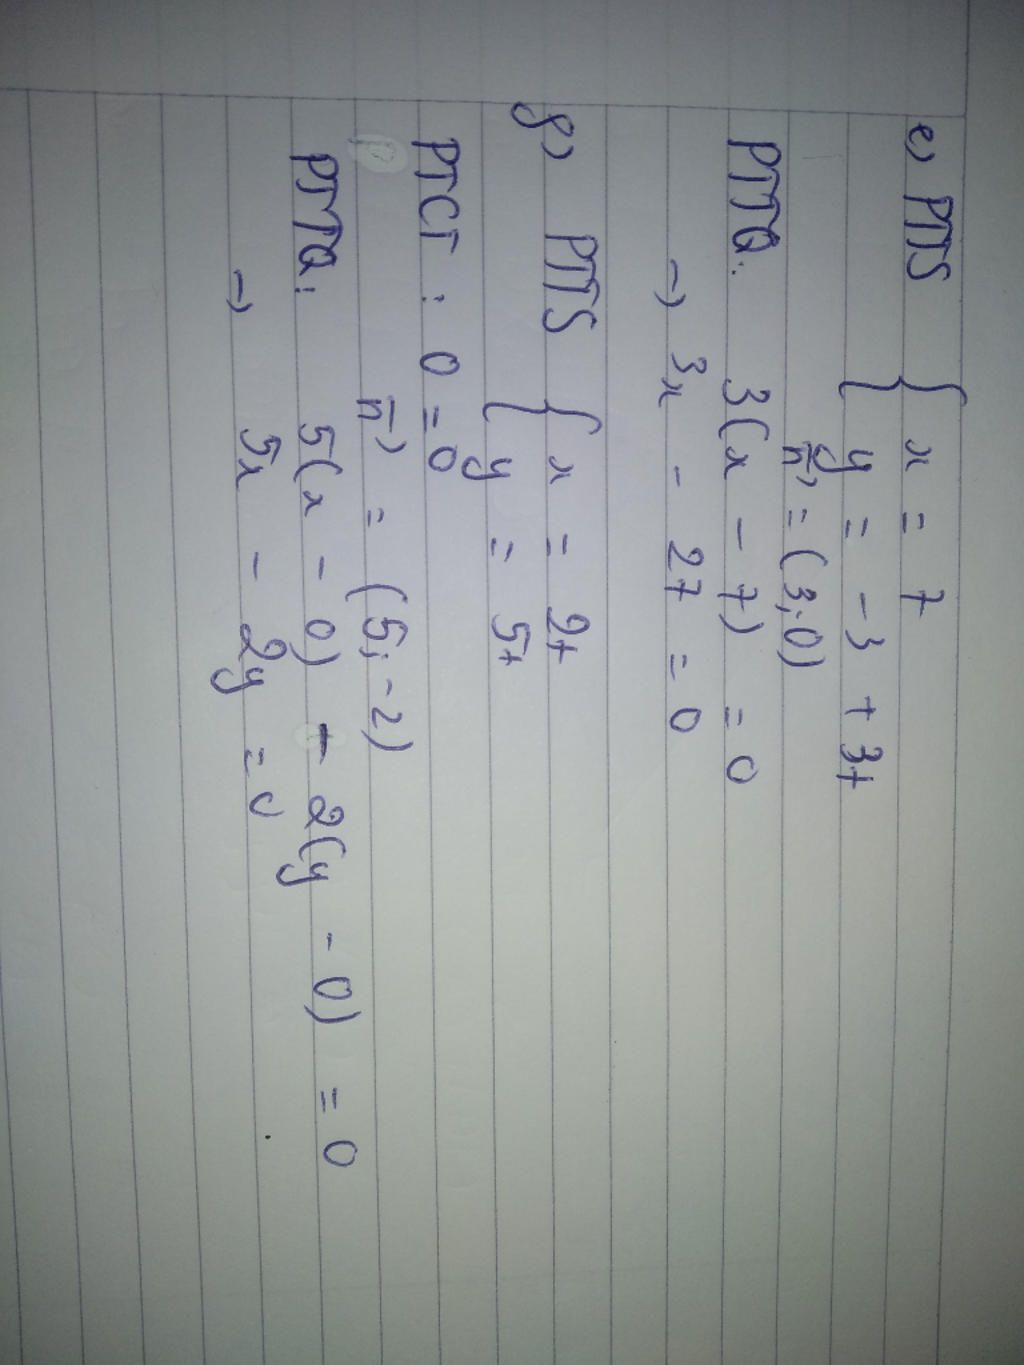 e) PTTS { x = 7
{ y = -3 + 3t
n→ = (3; 0)
PTTQ: 3(x - 7) = 0
→ 3x - 27 = 0
f) PTTS { x = 2t
{ y = 5t
PTCT : 0 = 0
n→ = (5; -2)
PTTQ: 5(x - 0) - 2(y - 0) = 0
→ 5x - 2y = 0